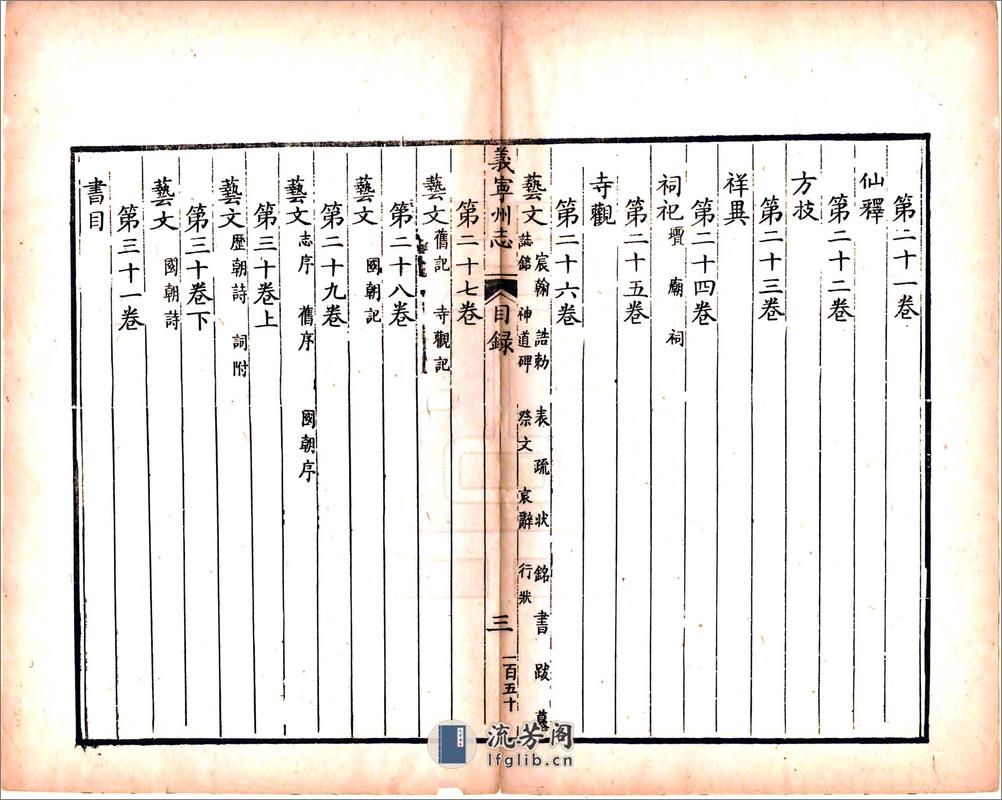 第二十一卷
仙釋
第二十二卷
方技
第二十三卷
祥異
第二十四卷
祠祀 壇 廟 祠
第二十五卷
寺觀
第二十六卷
藝文 宸翰 誥勅 表 疏 狀 銘 書 跋 墓
誌銘 神道碑 祭文 哀辭 行狀
義寧州志 目錄 三 一百五十
第二十七卷
藝文 舊記 寺觀記
第二十八卷
藝文 國朝記
第二十九卷
藝文 志序 舊序 國朝序
第三十卷上
藝文 歷朝詩 詞附
第三十卷下
藝文 國朝詩
第三十一卷
書目
流芳阁
lfglib.cn